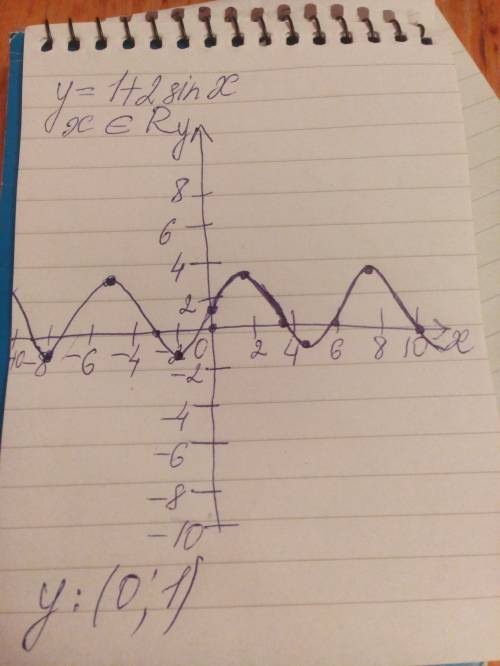 y = 1+2 sin x
x ∈ R
y
8
6
4
2
-10 -8 -6 -4 -2 0 2 4 6 8 10 x
-2
-4
-6
-8
-10
y: (0; 1)